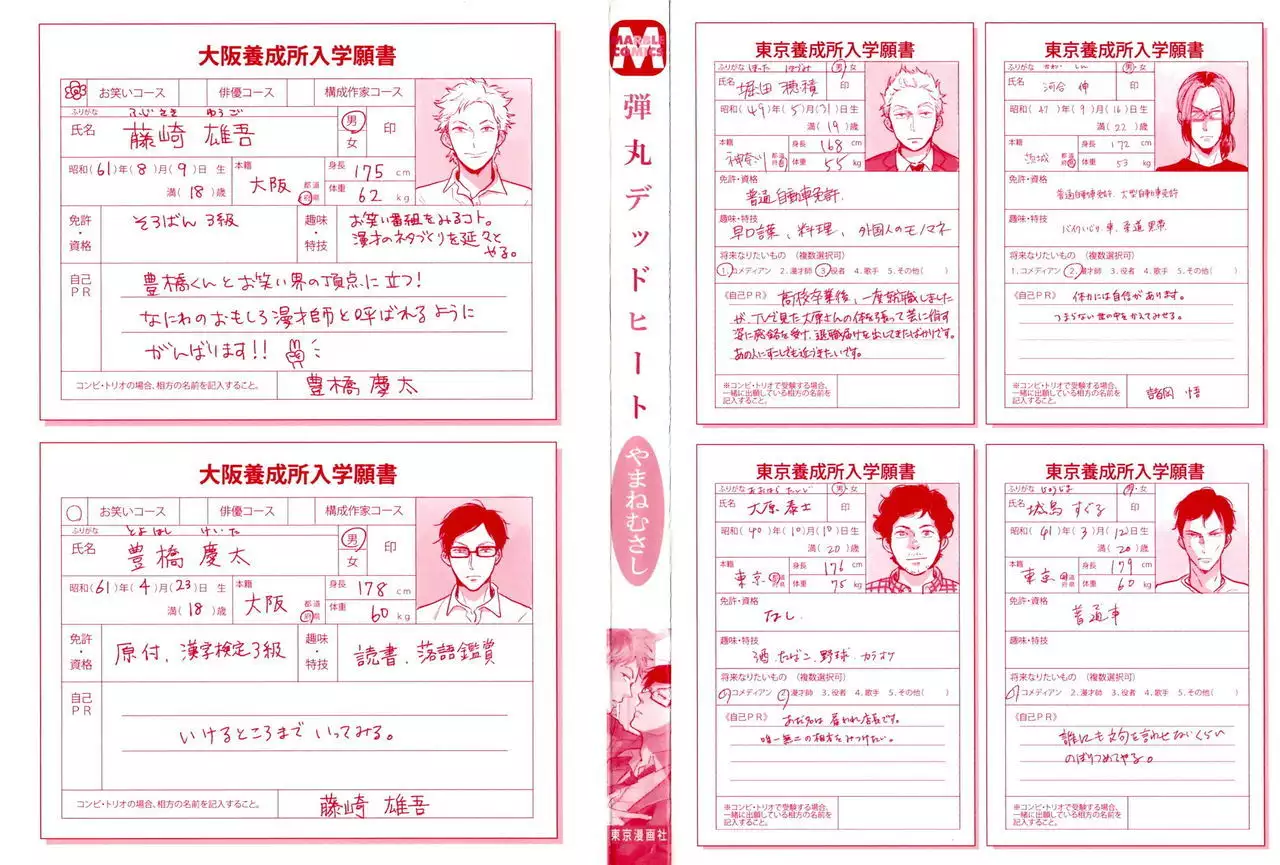 大阪養成所入学願書
お笑いコース 俳優コース 構成作家コース
ふりがな ふじさき ゆうご
氏名 藤崎 雄吾 男・女 印
昭和(61)年(8)月(9)日 生
満(18)歳
本籍 大阪 都道府県
身長 175 cm
体重 62 kg
免許・資格 そろばん 3級
趣味・特技 お笑い番組をみるコト。
漫才のネタづくりを延々と
やる。
自己PR
豊橋くんとお笑い界の頂点に立つ!
なにわのおもしろ漫才師と呼ばれるように
がんばります!!
コンビ・トリオの場合、相方の名前を記入すること。 豊橋慶太
大阪養成所入学願書
お笑いコース 俳優コース 構成作家コース
ふりがな とよはし けいた
氏名 豊橋 慶太 男・女 印
昭和(61)年(4)月(23)日 生
満(18)歳
本籍 大阪 都道府県
身長 178 cm
体重 60 kg
免許・資格 原付、漢字検定3級
趣味・特技 読書、落語鑑賞
自己PR
いけるところまで いってみる。
コンビ・トリオの場合、相方の名前を記入すること。 藤崎 雄吾
MARBLE COMICS
弾丸デッドヒート
やまねむさし
東京漫画社
東京養成所入学願書
ふりがな ほった ほづみ 男・女
氏名 堀田 穂積 印
昭和(49)年(5)月(31)日生
満(19)歳
本籍 神奈川 都道府県
身長 168 cm
体重 55 kg
免許・資格
普通自動車免許
趣味・特技
早口言葉、料理、外国人のモノマネ
将来なりたいもの (複数選択可)
1.コメディアン 2.漫才師 3.役者 4.歌手 5.その他( )
《自己PR》 高校卒業後、一度就職しました
が、TVで見た大原さんの体を張って芸に徹す
姿に感銘を受け、退職届けを出してきたばかりです。
あの人にすこしでも近づきたいです。
※コンビ・トリオで受験する場合、
一緒に出願している相方の名前を
記入すること。
東京養成所入学願書
ふりがな かわい しん 男・女
氏名 河合 伸 印
昭和(47)年(9)月(16)日生
満(22)歳
本籍 茨城 都道府県
身長 172 cm
体重 53 kg
免許・資格
普通自動車免許、大型自動車免許
趣味・特技
バイクいじり、車、柔道 黒帯
将来なりたいもの (複数選択可)
1.コメディアン 2.漫才師 3.役者 4.歌手 5.その他( )
《自己PR》 体力には自信があります。
つまらない世の中をかえてみせる。
※コンビ・トリオで受験する場合、
一緒に出願している相方の名前を
記入すること。
諸岡 悟
東京養成所入学願書
ふりがな おおはら たいじ 男・女
氏名 大原 泰士 印
昭和(40)年(10)月(10)日生
満(20)歳
本籍 東京 都道府県
身長 176 cm
体重 75 kg
免許・資格
なし
趣味・特技
酒、たばこ、野球、カラオケ
将来なりたいもの (複数選択可)
1.コメディアン 2.漫才師 3.役者 4.歌手 5.その他( )
《自己PR》 あだ名は 雇われ店長です。
唯一無二の相方をみつけたい。
※コンビ・トリオで受験する場合、
一緒に出願している相方の名前を
記入すること。
東京養成所入学願書
ふりがな じょうじま 男・女
氏名 城島 すぐる 印
昭和(41)年(3)月(12)日生
満(20)歳
本籍 東京 都道府県
身長 179 cm
体重 60 kg
免許・資格
普通車
趣味・特技
将来なりたいもの (複数選択可)
1.コメディアン 2.漫才師 3.役者 4.歌手 5.その他( )
《自己PR》
誰にも文句を言わせないくらい
のぼりつめてやる。
※コンビ・トリオで受験する場合、
一緒に出願している相方の名前を
記入すること。